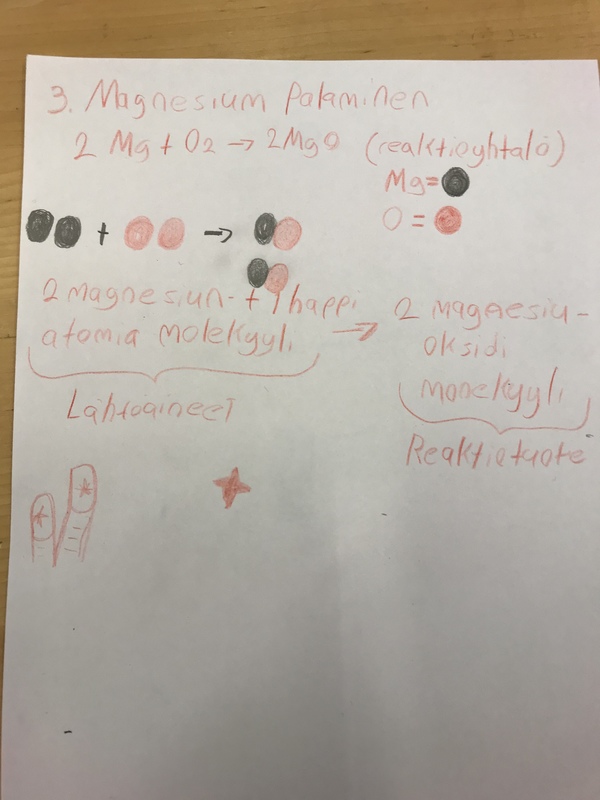 3. Magnesium Palaminen
2 Mg + O2 → 2MgO (reaktioyhtälö)
Mg=
O =
+ →
2 magnesiun- + 1 happi
atomia molekyyli
→ 2 magnesiu-
oksidi
monekyyli
Lähtöaineet
Reaktiotuote